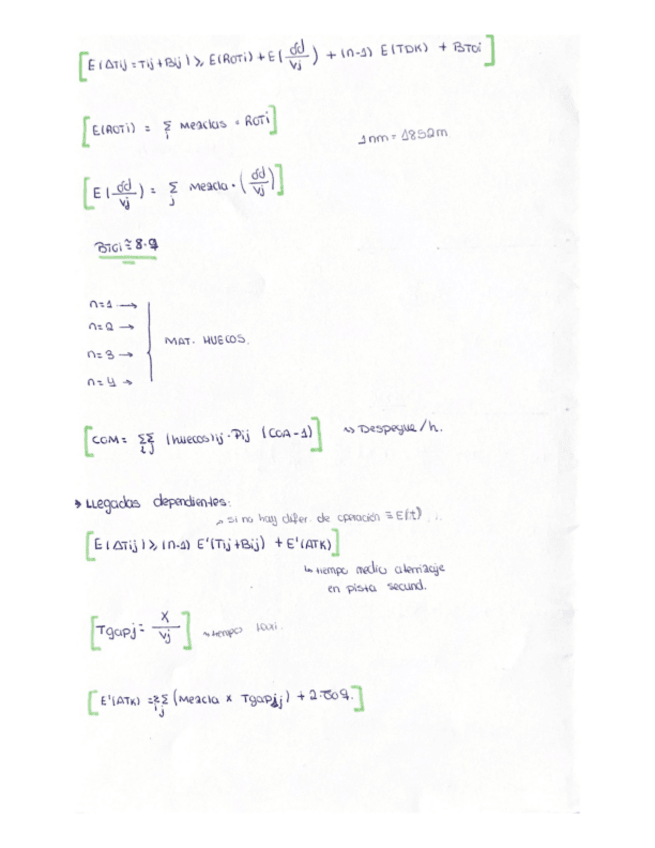 [E(ΔTij = Tij + Bij) ≥ E(ROTi) + E(δd/vj) + (n-1) E(TDK) + BTGi]
[E(ROTi) = Σi Mezclas · ROTi]
1nm = 1852m
[E(δd/vj) = Σj Mezcla · (δd/vj)]
BTGi ≅ 8·q
n=1 →
n=2 →
n=3 →
n=4 →
MAT. HUECOS.
[COM = Σi Σj (huecos)ij · Pij (COA-1)] ↳ Despegue/h.
→ Llegadas dependientes:
↗ si no hay difer. de operación = E(t)
[E(ΔTij) ≥ (n-1) E'(Tij+Bij) + E'(ATK)]
↳ tiempo medio aterrizaje
en pista secund.
[Tgapj = X/vj] → tiempo taxi.
[E'(ATK) = Σi Σj (Mezcla x Tgapij) + 2·σ0q.]